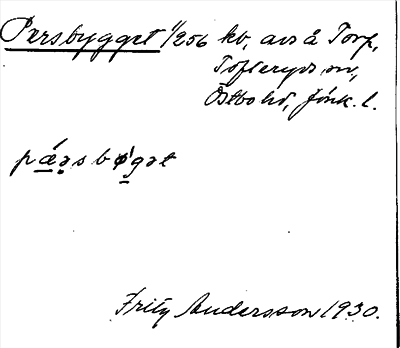 Persbygget 1/256 kb, avs å Torp,
Tofteryds sn,
Östbo hd, Jönk. l.
pǽəsbøgət
Fritz Andersson 1930.